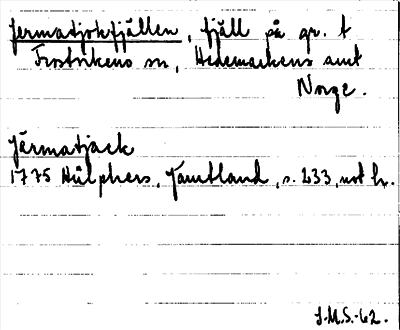 Jermatjokfjällen, fjäll på gr. t
Frostvikens sn, Hedemarkens amt
Norge.
Järmatjack
1775 Hülphers, Jämtland, s. 233, not h.
J.M.S.-62.